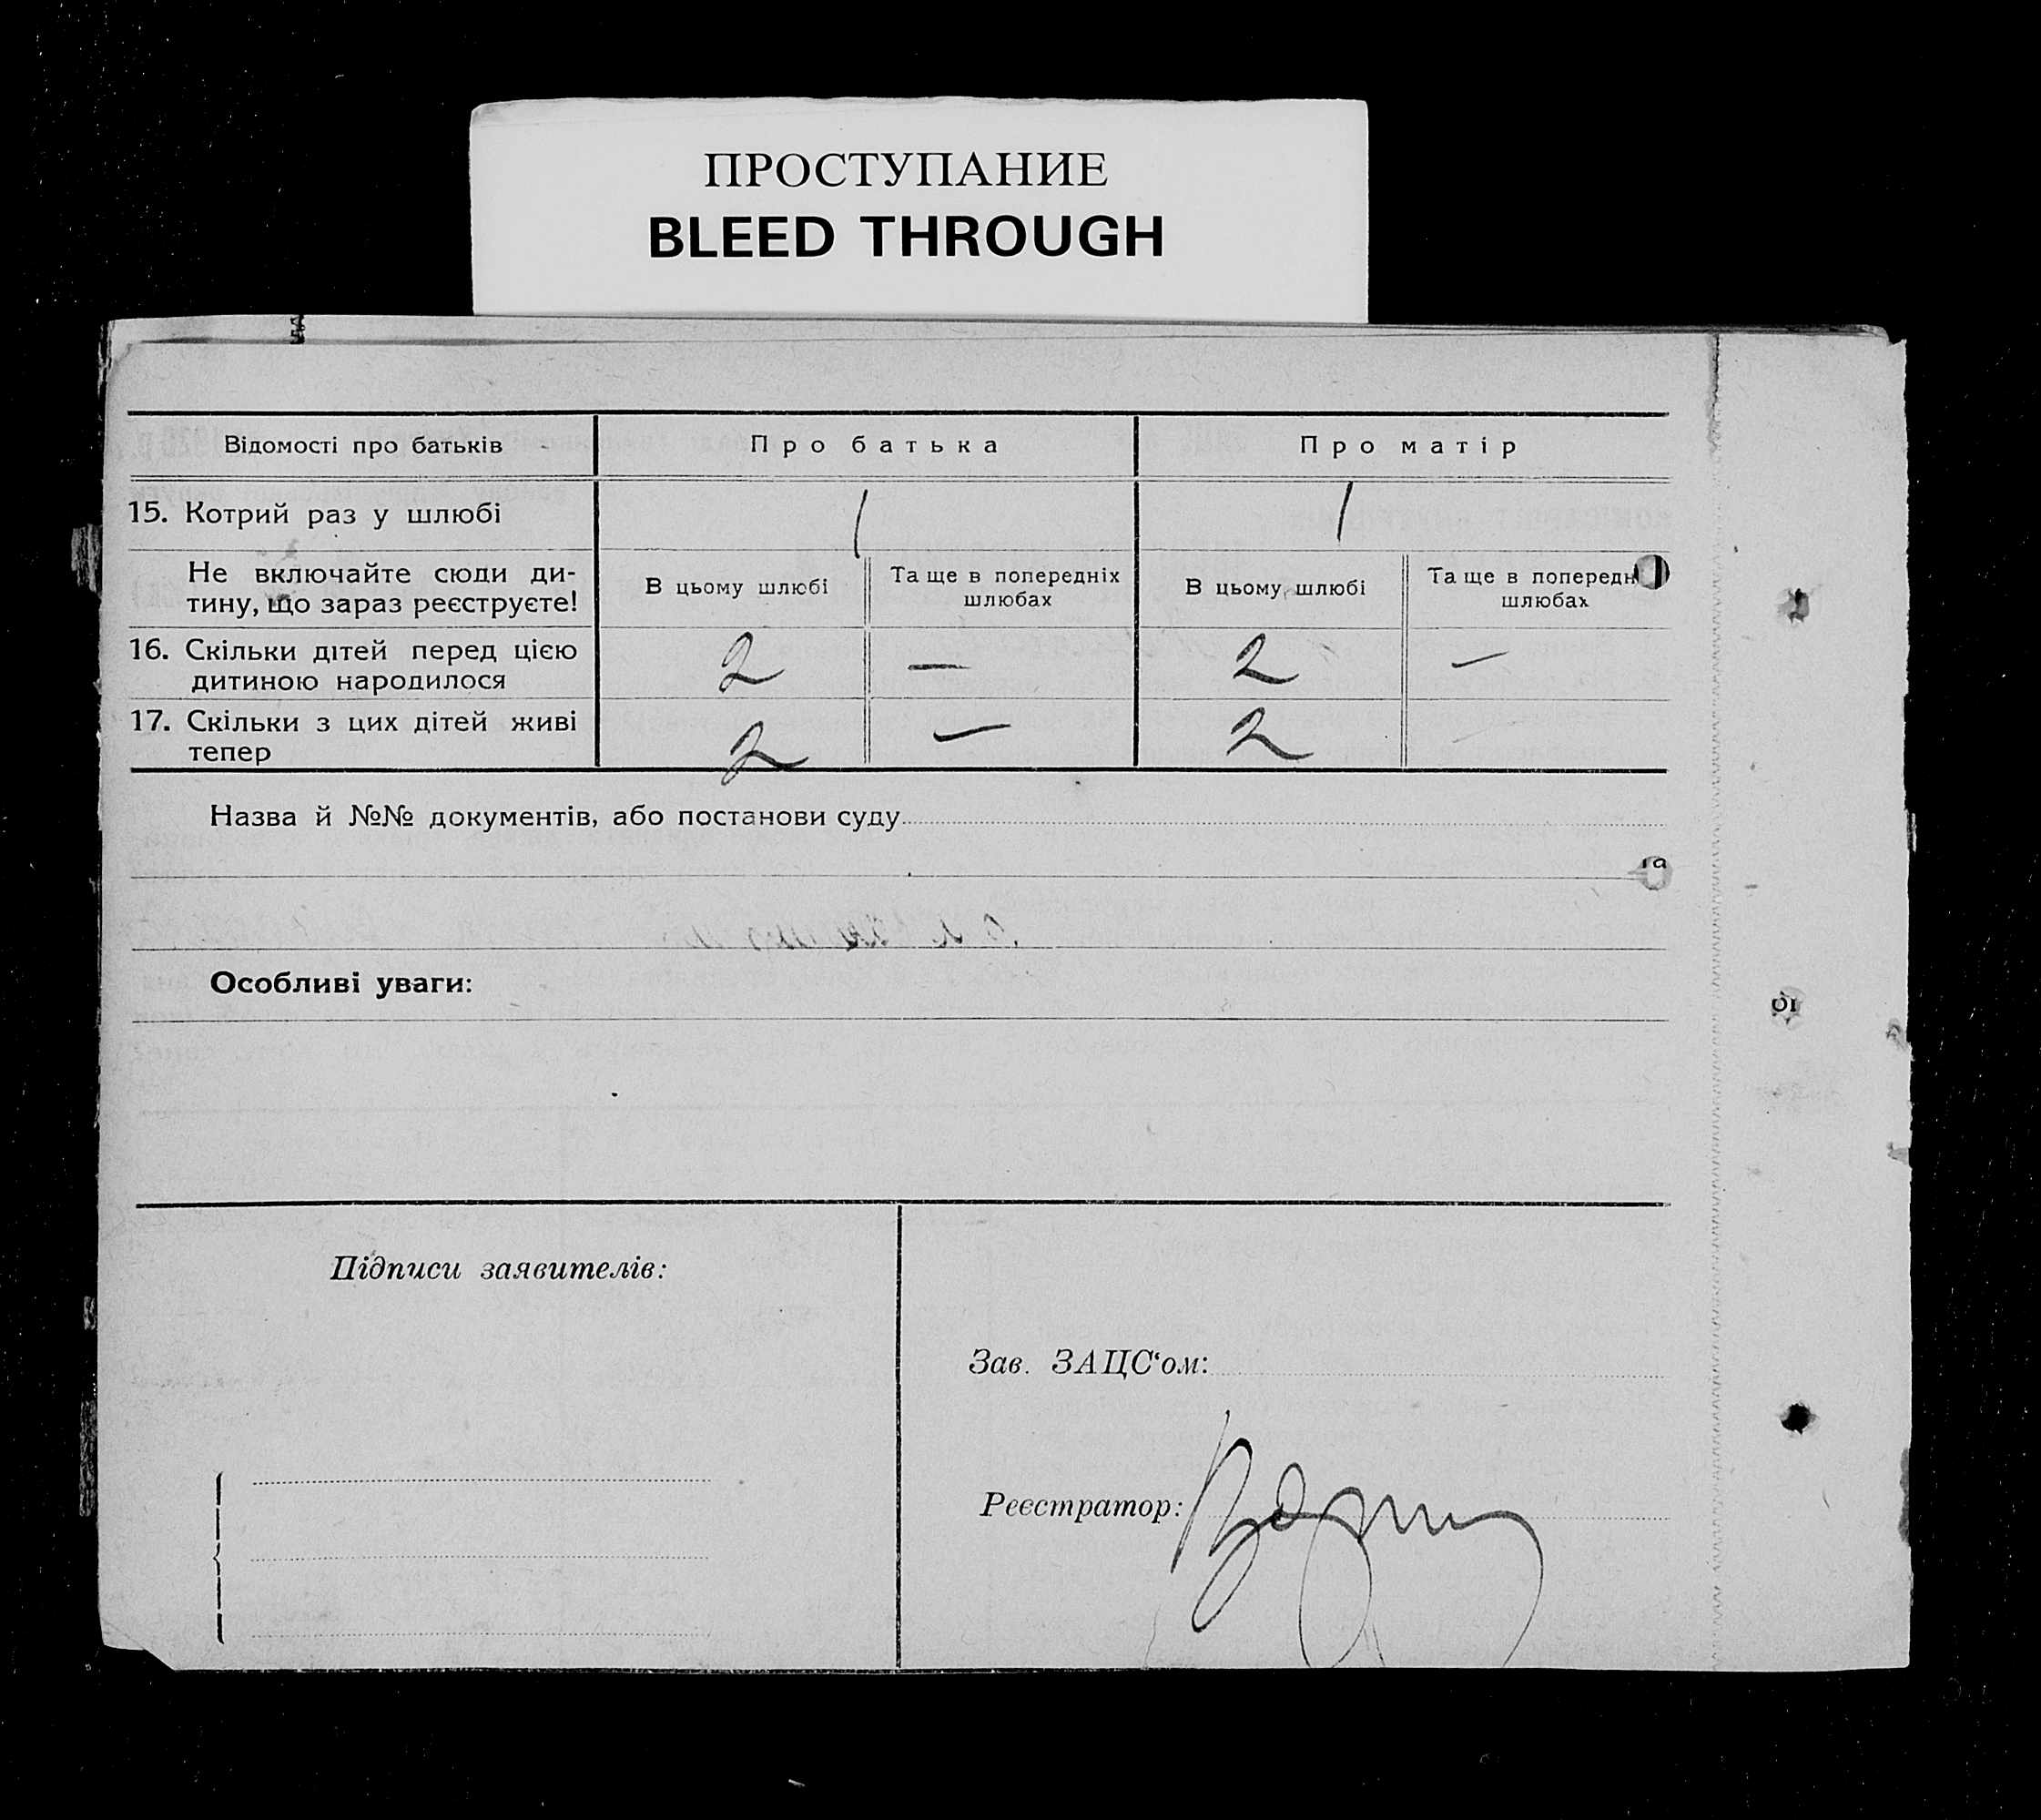 ПРОСТУПАНИЕ
BLEED THROUGH
Відомості про батьків
Про батька
Про матір
15. Котрий раз у шлюбі
1
1
Не включайте сюди ди-
тину, що зараз реєструєте!
В цьому шлюбі
Та ще в попередніх
шлюбах
В цьому шлюбі
Та ще в попередн
шлюбах
16. Скільки дітей перед цією
дитиною народилося
2
—
2
—
17. Скільки з цих дітей живі
тепер
2
—
2
Назва й №№ документів, або постанови суду
Особливі уваги:
Підписи заявителів:
Зав. ЗАЦС‘ом:
Реєстратор: